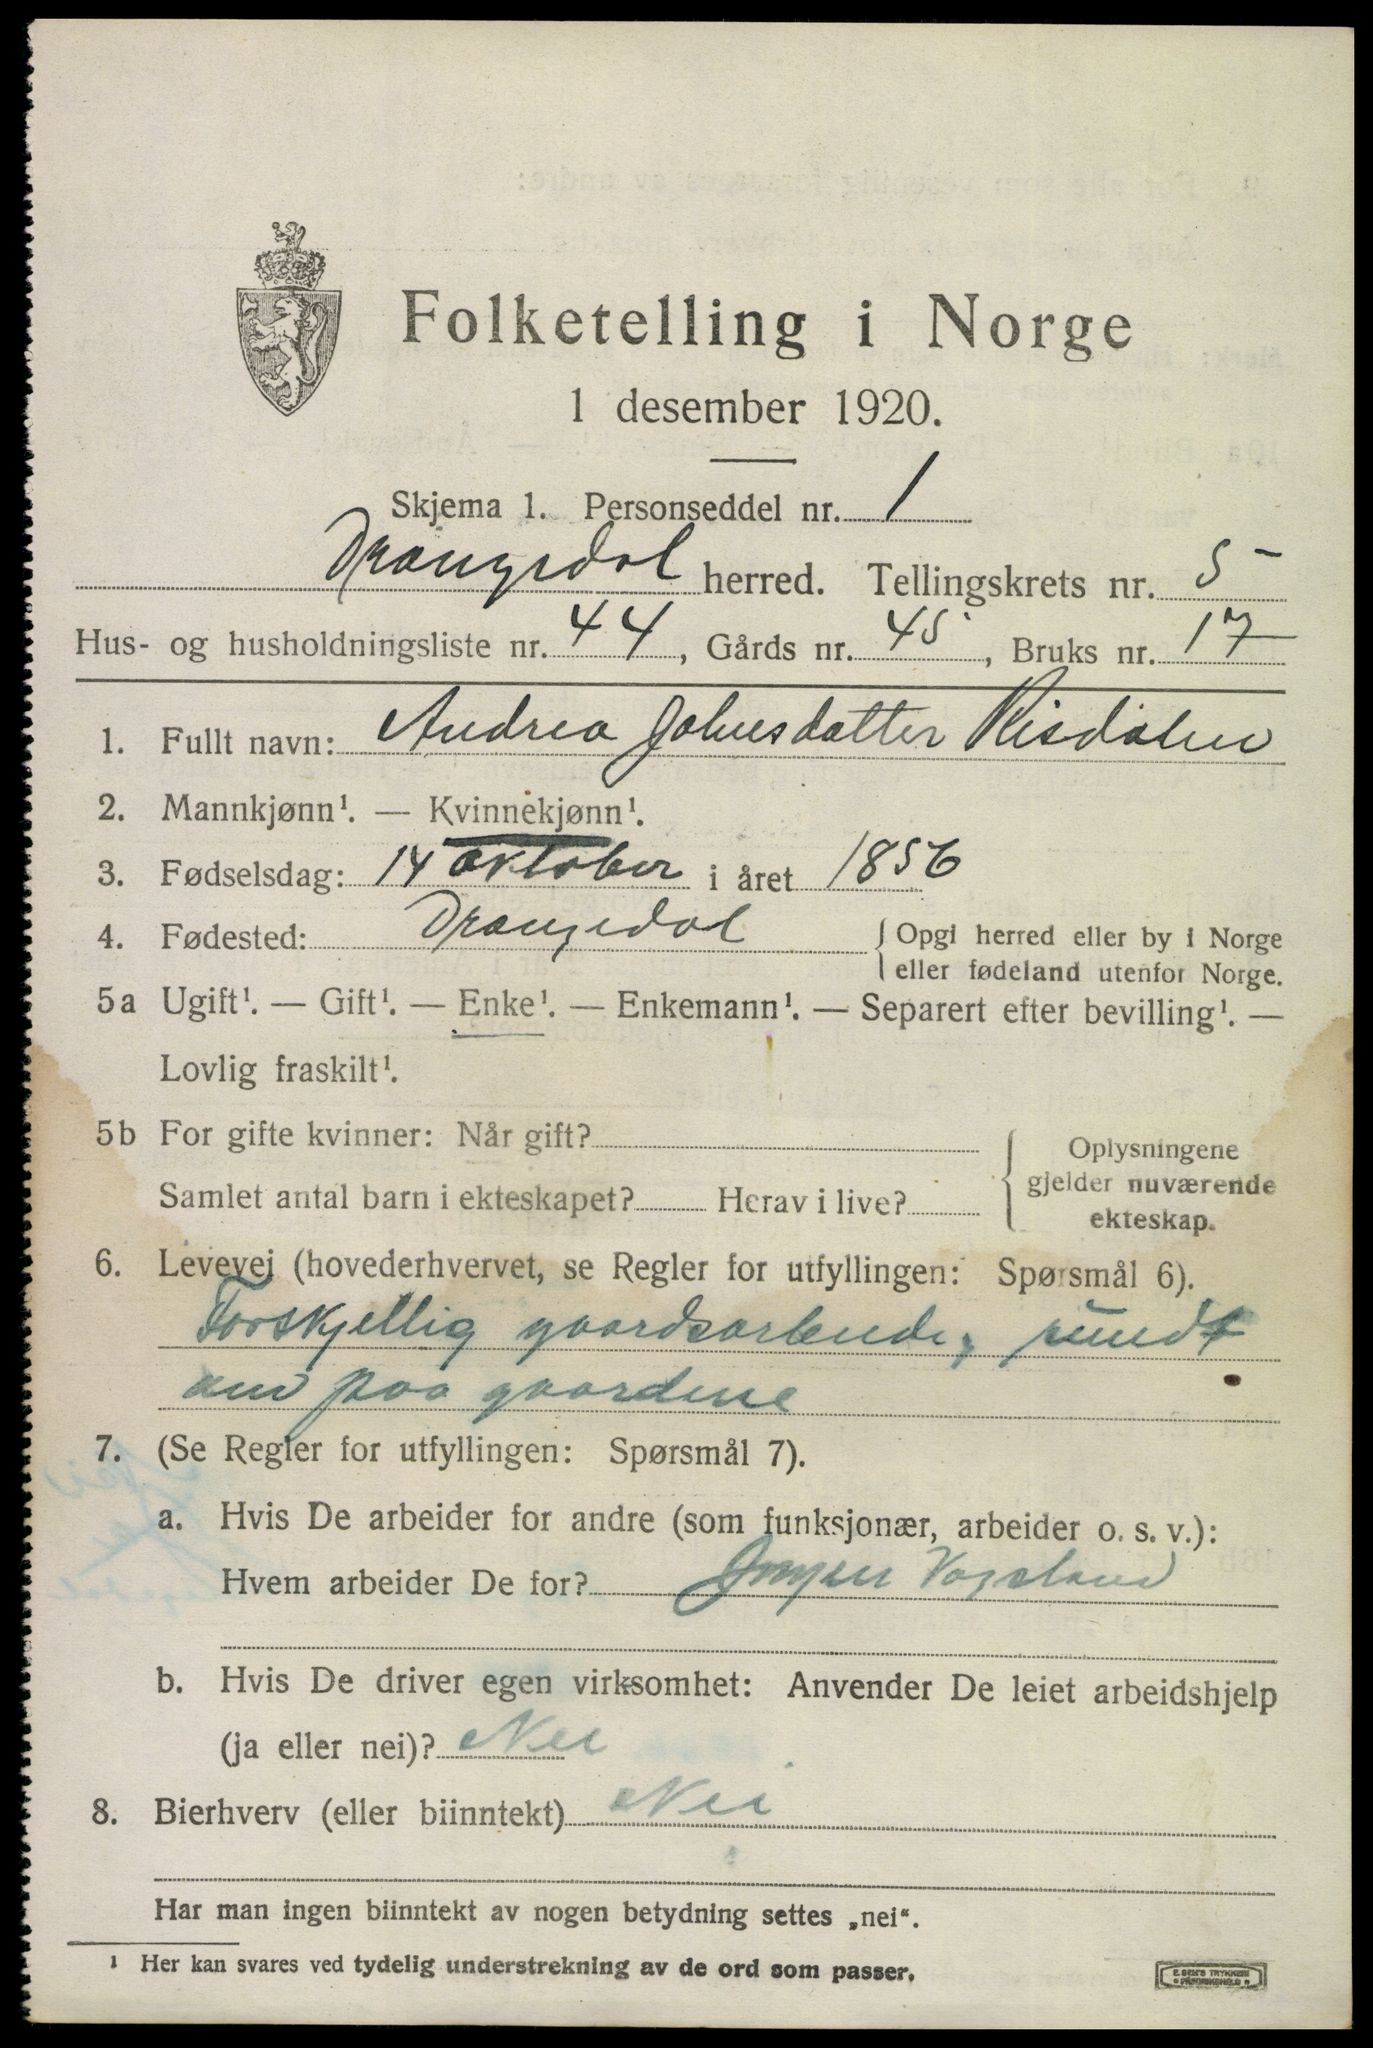 Folketelling i Norge
1 desember 1920.
Skjema 1. Personseddel nr. 1
Drangedal herred. Tellingskrets nr. 5
Hus- og husholdningsliste nr. 44, Gårds nr. 45, Bruks nr. 17
1. Fullt navn: Andrea Johnsdatter Risdalen
2. Mannkjønn¹. — Kvinnekjønn¹.
3. Fødselsdag: 14 oktober i året 1856
4. Fødested: Drangedal { Opgi herred eller by i Norge
eller fødeland utenfor Norge.
5a Ugift¹. — Gift¹. — Enke¹. — Enkemann¹. — Separert efter bevilling¹. —
Lovlig fraskilt¹.
5b For gifte kvinner: Når gift?
Samlet antal barn i ekteskapet? Herav i live?
{ Oplysningene
gjelder nuværende
ekteskap.
6. Levevei (hovederhvervet, se Regler for utfyllingen: Spørsmål 6).
Forskjellig gaardsarbeide, rundt
om paa gaardene
7. (Se Regler for utfyllingen: Spørsmål 7).
a. Hvis De arbeider for andre (som funksjonær, arbeider o. s. v.):
Hvem arbeider De for? Jørgen Vogsland
b. Hvis De driver egen virksomhet: Anvender De leiet arbeidshjelp
(ja eller nei)? Nei
8. Bierhverv (eller biinntekt) Nei
Har man ingen biinntekt av nogen betydning settes „nei“.
¹ Her kan svares ved tydelig understrekning av de ord som passer.